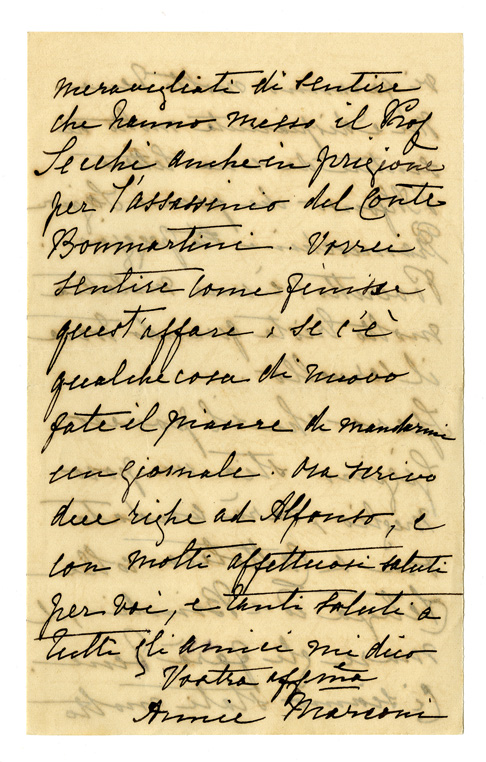 meravigliati di sentire
che hanno messo il Prof
Secchi anche in prigione
per l'assassinio del Conte
Bonmartini. Vorrei
sentire come finisse
quest'affare, se c'è
qualche cosa di nuovo
fate il piacere di mandarmi
un giornale. Ora scrivo
due righe ad Alfonso, e
con molti affettuosi saluti
per voi, e tanti saluti a
tutti gli amici mi dico
Vostra affma
Annie Marconi